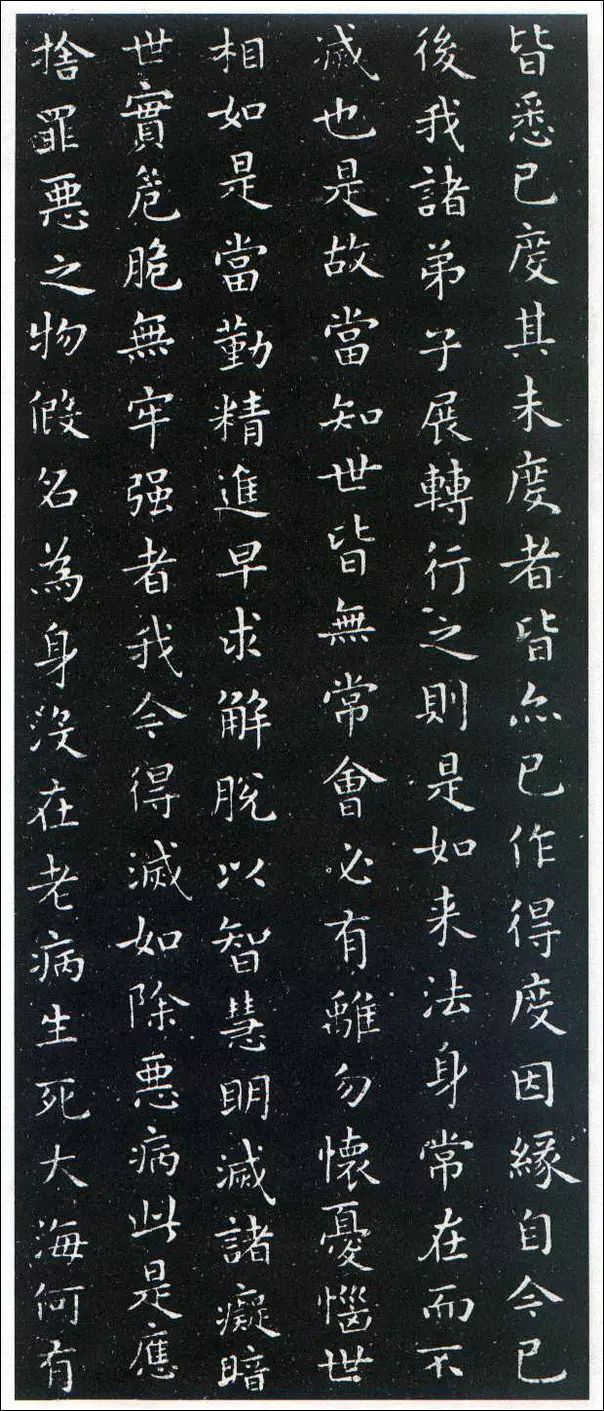 皆悉已度其未度者皆亦已作得度因緣自今已
後我諸弟子展轉行之則是如来法身常在而不
滅也是故當知世皆無常會必有離勿懷憂惱世
相如是當勤精進早求解脫以智慧明滅諸癡暗
世實危脆無牢强者我今得滅如除惡病此是應
捨罪惡之物假名為身没在老病生死大海何有